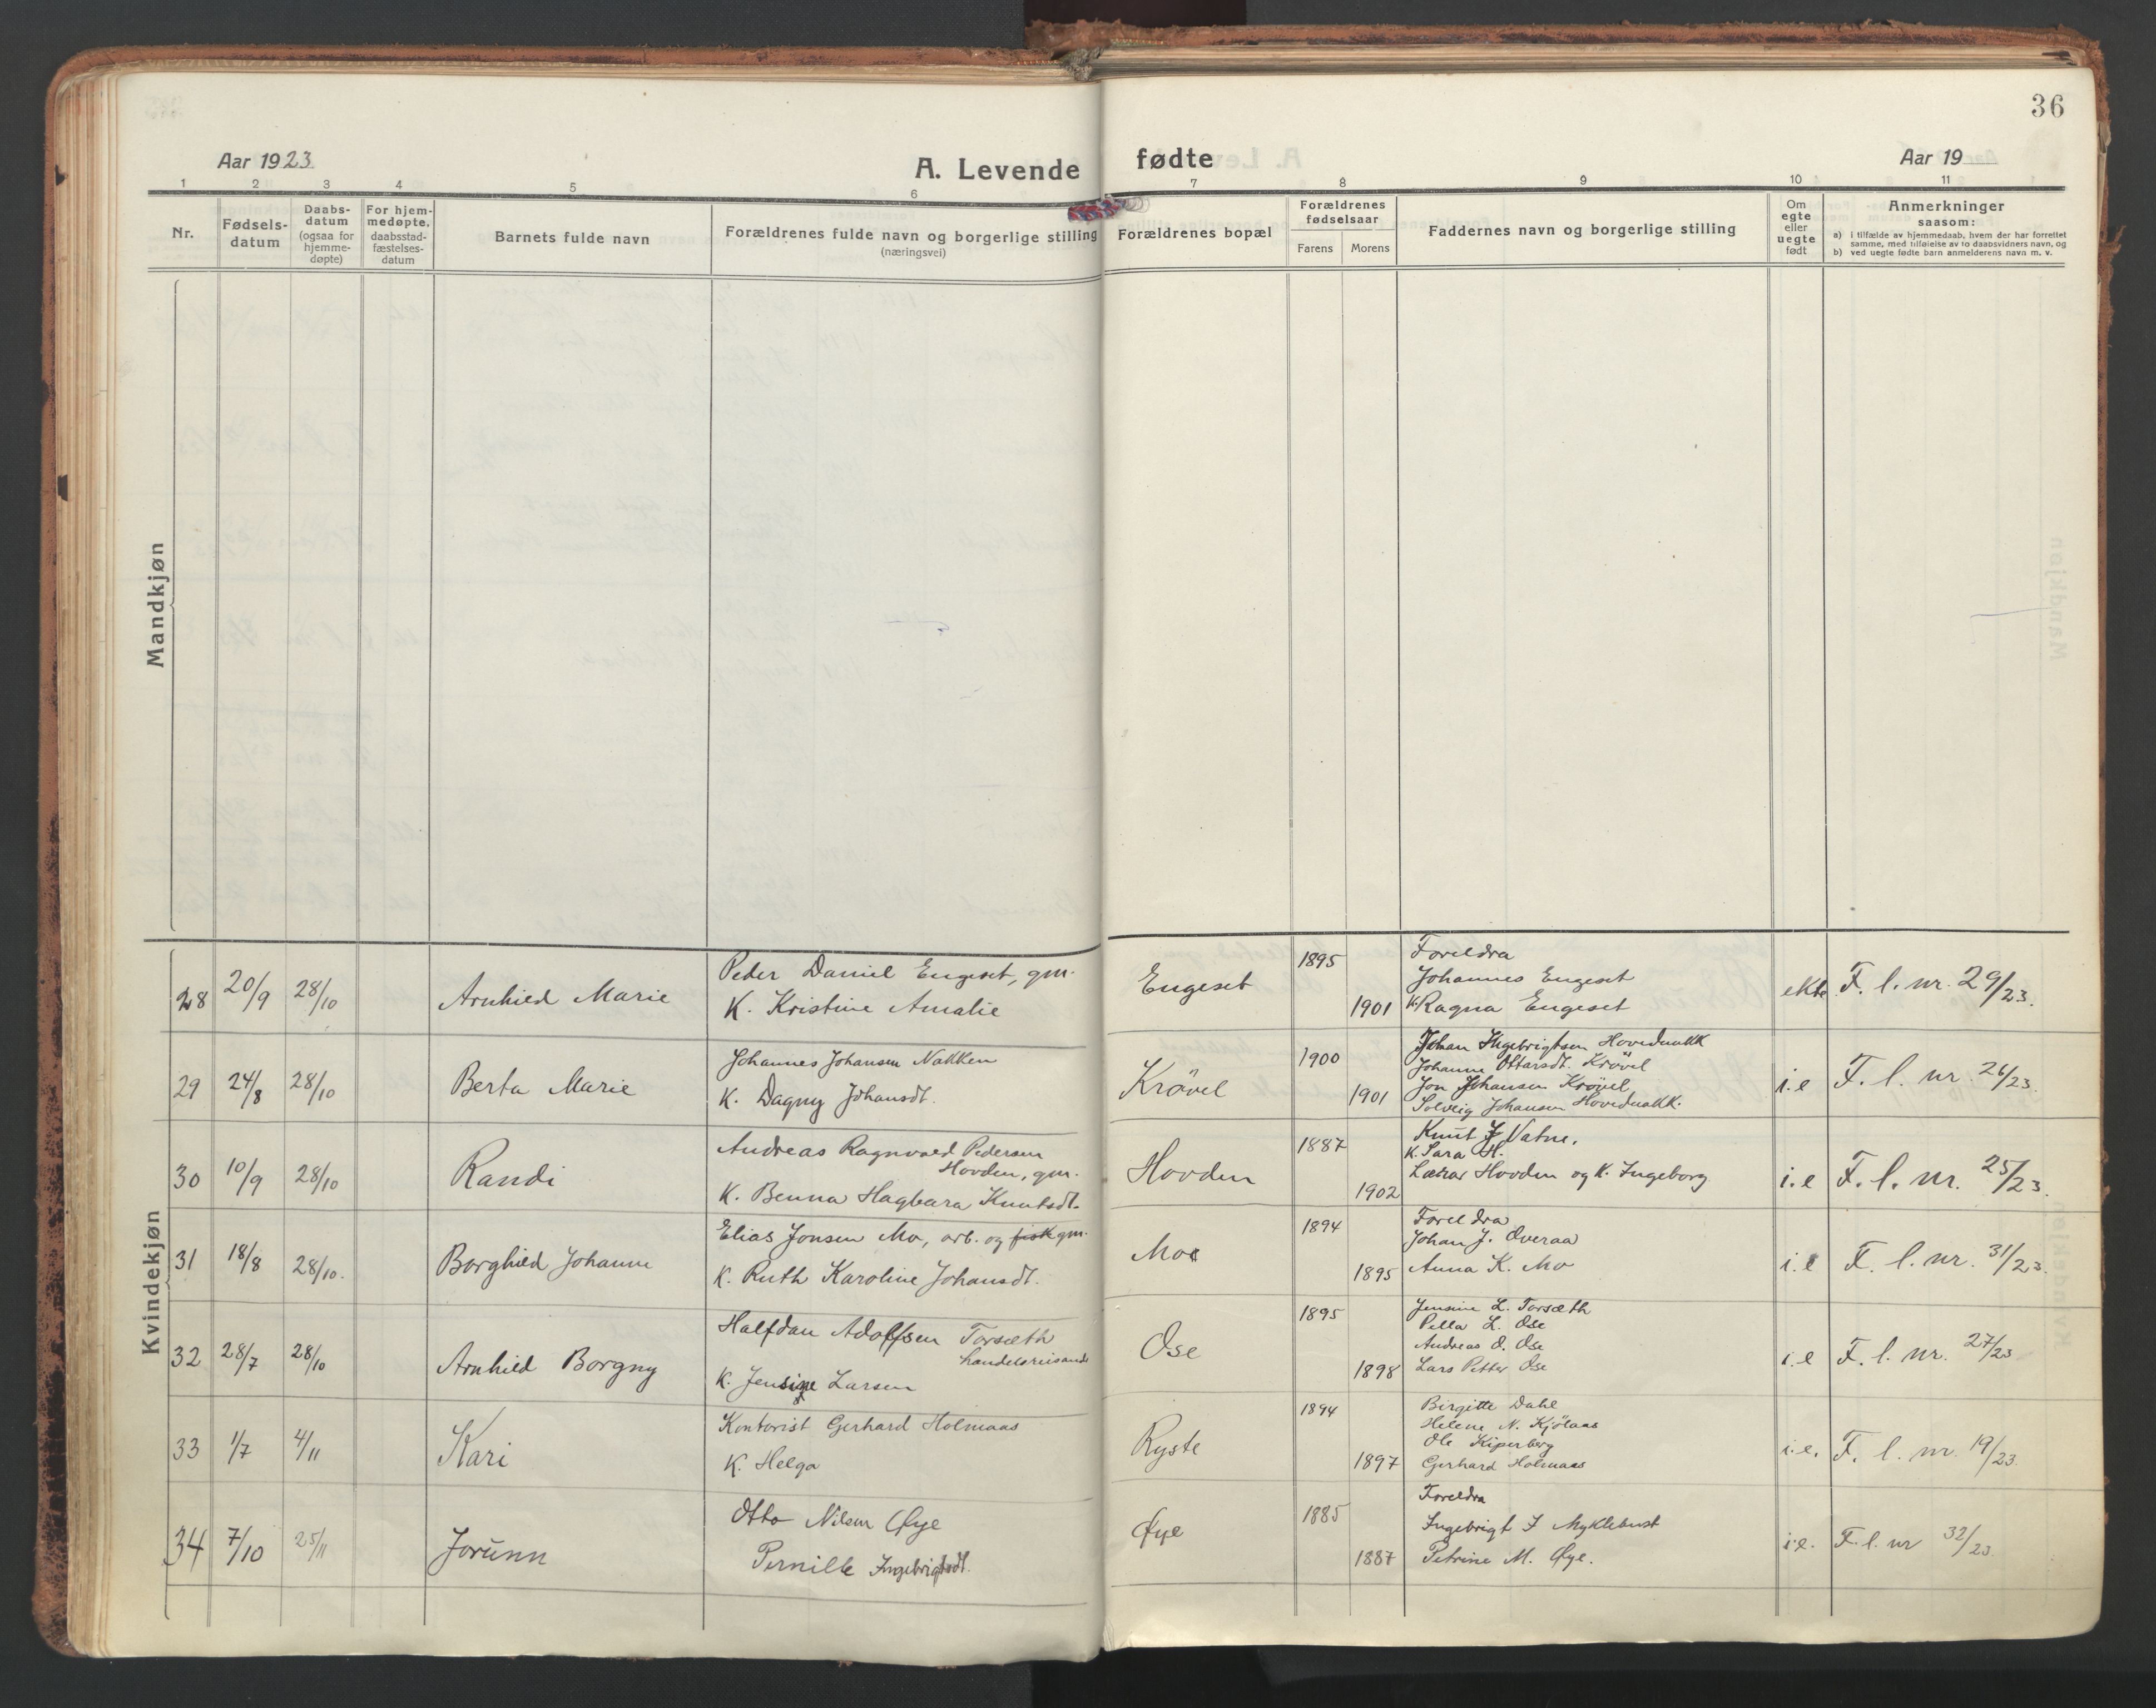 36
Aar 1923
A. Levende fødte
Aar 19
1 2 3 4 5 6 7 8 9 10 11
Nr.
Fødsels-
datum
Daabs-
datum
(ogsaa for
hjemme-
døpte)
For hjem-
medøpte,
daabsstad-
fæstelses-
datum
Barnets fulde navn
Forældrenes fulde navn og borgerlige stilling
(næringsvei)
Forældrenes bopæl
Forældrenes
fødselsaar
Farens Morens
Faddernes navn og borgerlige stilling
Om
egte
eller
uegte
født
Anmerkninger
saasom:
a) i tilfælde av hjemmedaab, hvem der har forrettet
samme, med tilføielse av to daabsvidners navn, og
b) ved uegte fødte barn anmelderens navn m. v.
Mandkjøn
Kvindekjøn
28 20/9 28/10 Arnhild Marie
Peder Daniel Engeset, gm.
K. Kristine Amalie
Engeset 1895 1901
Foreldra
Johannes Engeset
K. Ragna Engeset
ekte F. l. nr. 29/23.
29 24/8 28/10 Berta Marie
Johannes Johansen Nakken
K. Dagny Johansdt.
Krövel 1900 1901
Johan Ingebrigtsen Hovednakk
Johanne Ottarsdt. Krövel
Jon Johansen Krövel
Solveig Johansen Hovednakk.
i.e F. l. nr. 26/23.
30 10/9 28/10 Randi
Andreas Ragnvald Pedersen
Hovden, gm.
K. Benna Hagbara Knutsdt.
Hovden 1887 1902
Knut J Vatne.
K. Sara H.
Lars Hovden og K. Ingeborg
i.e F. l. nr. 25/23.
31 18/8 28/10. Borghild Johanne
Elias Jonsen Mo, arb. og fisk gm.
K. Ruth Karoline Johansdt.
Mo 1894 1895
Foreldra
Johan J. Överaa
Anna K. Mo
i.e F. l. nr. 31/23.
32 28/7 28/10 Arnhild Borgny
Halfdan Adolfsen Torsæth
handelsreisande
K. Jensine Larsen
Ose 1895 1898
Jensine L. Torsæth
Pella L. Ose
Andreas O. Ose
Lars Petter Ose
i.e F. l. nr. 27/23
33 1/7 4/11 Kari
Kontorist Gerhard Holmaas
K. Helga
Ryste 1894 1897
Birgitte Dahl
Helene N. Kjölaas
Ole Kiperberg
Gerhard Holmaas
i.e. F. l. nr. 19/23.
34 7/10 25/11 Jorunn
Otto Nilsen Øye
Pernille Ingebrigtsdt.
Øye 1885 1887
Foreldra
Ingebrigt J Myklebust
Petrine M. Øye.
i.e. F. l. nr 32/23.